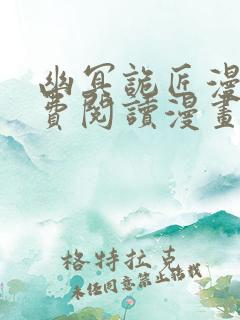 幽冥詭匠漫
費閱讀漫畫
格特拉克
未经同意禁止转载